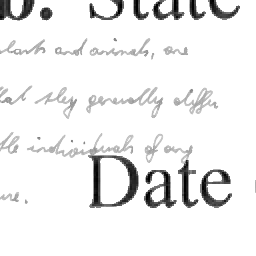 b. State
plants and animals, one
that they generally differ
the individuals of any
Date
ure.